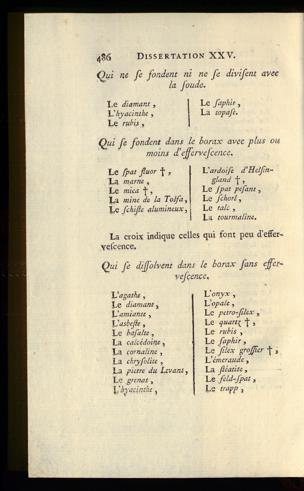 486 DISSERTATION XXV.
Qui ne ſe fondent ni ne ſe diviſent avec
la ſoude.
Le diamant,
L'hyacinthe,
Le rubis,
Le ſaphir,
La topaſe.
Qui ſe fondent dans le borax avec plus ou
moins d'efferveſcence.
Le ſpat fluor †,
La marne,
Le mica †,
La mine de la Tolfa,
Le ſchiſte alumineux,
L'ardoiſe d'Helſin-
gland †,
Le ſpat peſant,
Le ſchorl,
Le talc,
La tourmaline.
La croix indique celles qui font peu d'effer-
veſcence.
Qui ſe diſſolvent dans le borax ſans effer-
veſcence.
L'agathe,
Le diamant,
L'amiante,
L'asbeſte,
Le baſalte,
La calcédoine,
La cornaline,
La chryſolite,
La pierre du Levant,
Le grenat,
L'hyacinthe,
L'onyx,
L'opale,
Le petro-ſilex,
Le quartz †,
Le rubis,
Le ſaphir,
Le ſilex groſſier †,
L'émeraude,
La ſtéatite,
Le feld-ſpat,
Le trapp,